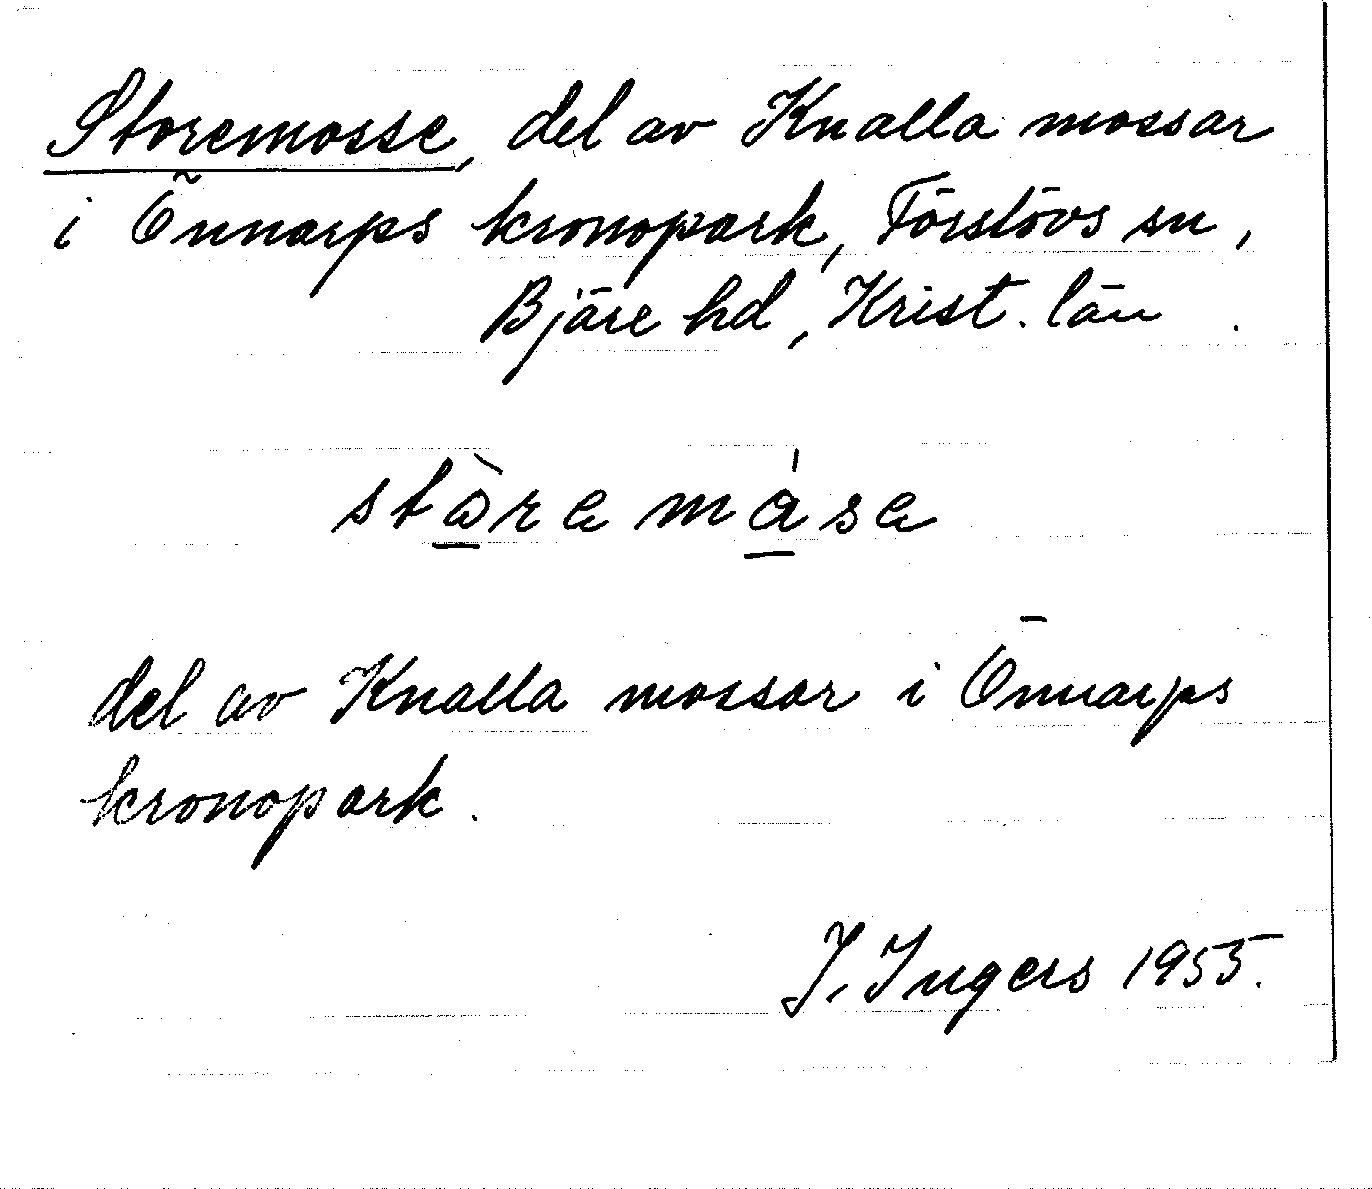 Storemosse, del av Knalla mossar
i Önnarps kronopark, Förslövs sn,
Bjäre hd, Krist. län.
stòremáse
del av Knalla mossar i Önnarps
kronopark.
J. Ingers 1955.